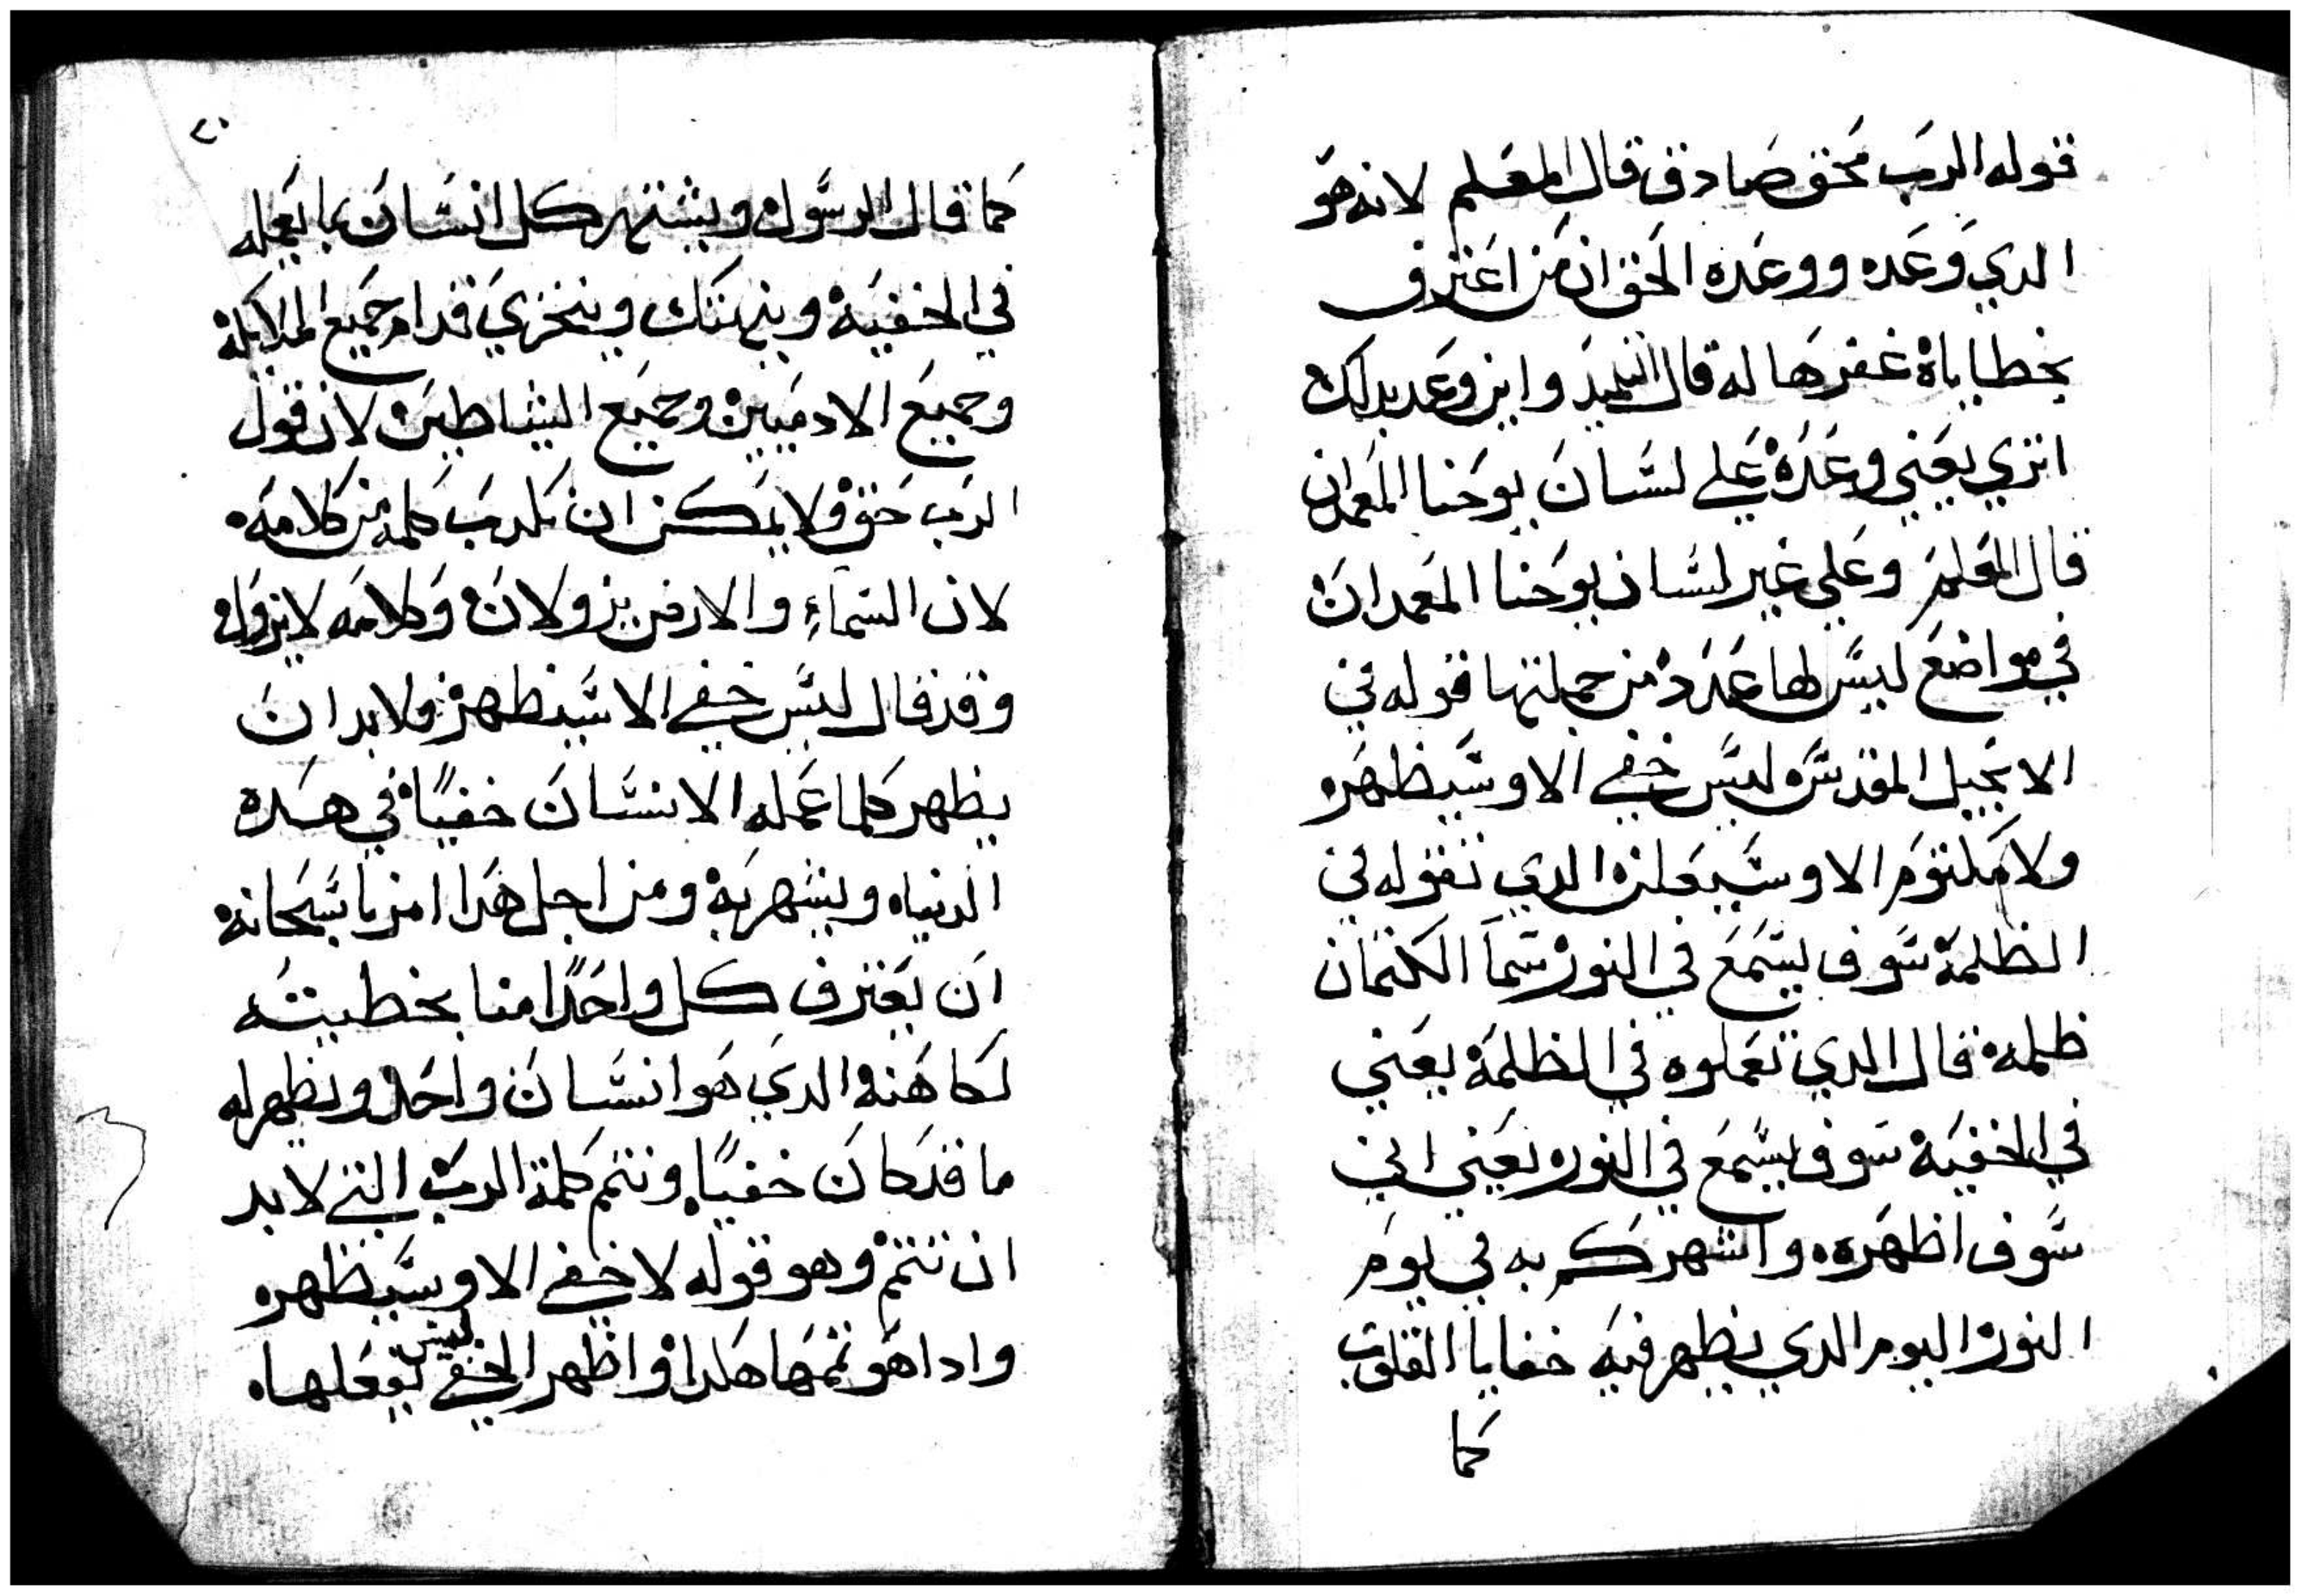 قوله الرب محق صادق قال المعلم لانه هو
الدي وعده ووعده الحق ان من اعترف
بخطاياه غفرها له قال التلميد واين وعد بدلك
اتري يعني وعده علي لسان يوحنا المعمدان
قال المعلم وعلي غير لسان يوحنا المعمدان
في مواضع ليس لها عدد من جملتها قوله في
الانجيل المقدس ليس خفي الا وسيظهر
ولا مكتوم الا وسيعلن الدي تقوله في
الظلمة سوف يسمع في النور سما الكتمان
ظلمة قال الدي تعملوه في الظلمة يعني
في الخفية سوف يسمع في النور يعني اني
سوف اظهره واشهركم به في يوم
النور اليوم الدي يظهر فيه خفايا القلوب
كما
٢٠
كما قال الرسول ويشتهر كل انسان بما يعمله
في الخفية وينهتك وينخزي قدام جميع الملايكة
وجميع الادميين وجميع الشياطين لان قول
الرب حق ولا يمكن ان تكدب كلمة من كلامه
لان السماء والارض يزولان وكلامه لا يزول
وقد قال ليس خفي الا سيظهر ولا بد ان
يظهر كلما عمله الانسان خفيًا في هده
الدنيا ويشهر به ومن اجل هدا امرنا سبحانه
ان يعترف كل واحدًا منا بخطيته
لكاهنه الدي هو انسان واحد ويظهر له
ما قد كان خفيًا وتتم كلمة الرب التي لا بد
ان تتم وهو قوله لا خفي الا وسيظهر
وادا هو تمها هكدا واظهر الخفي ليس يفعلها